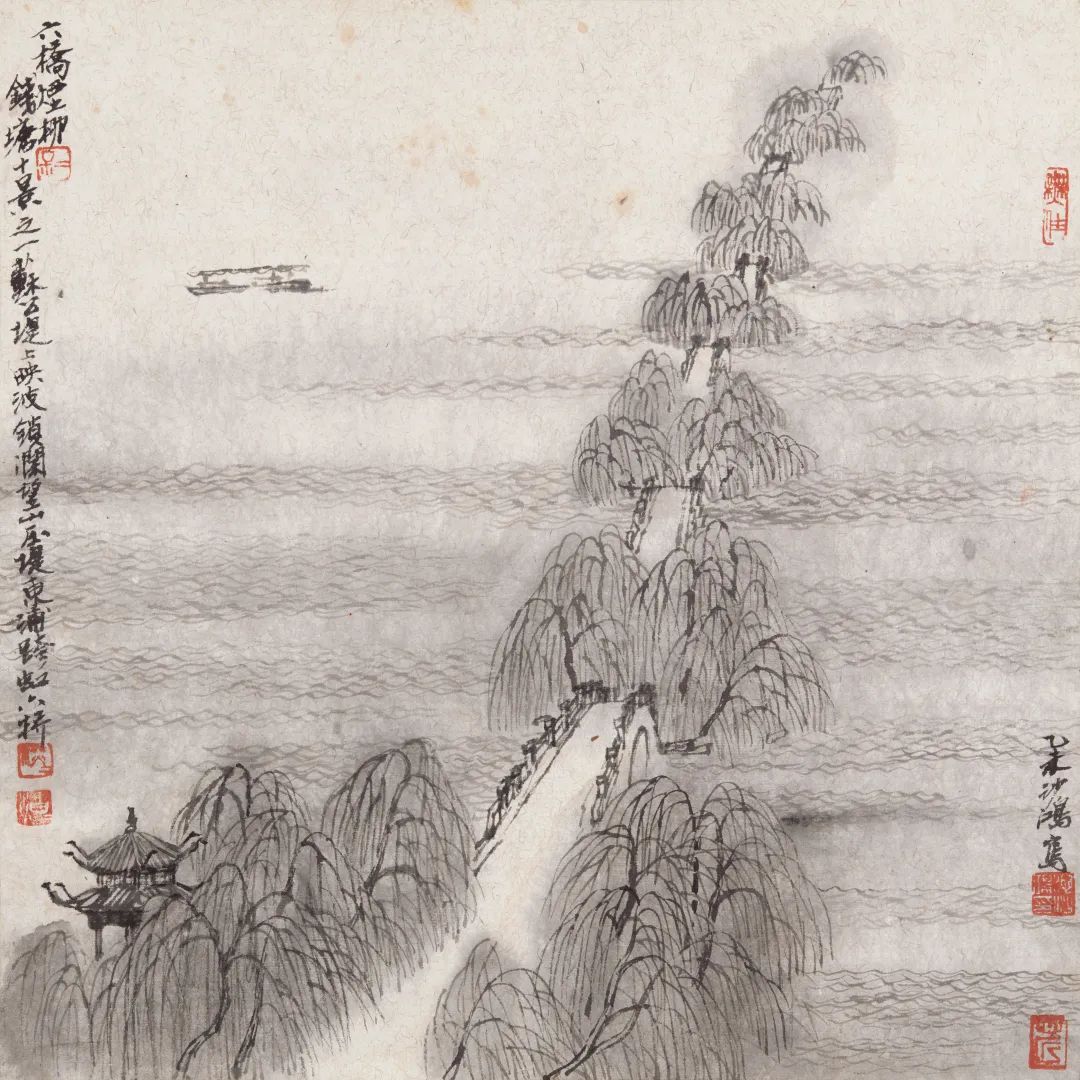 六橋煙柳
錢塘十景之一蘇公堤上映波鎖瀾望山压堤東浦跨虹六桥
乙未沙鴻寫